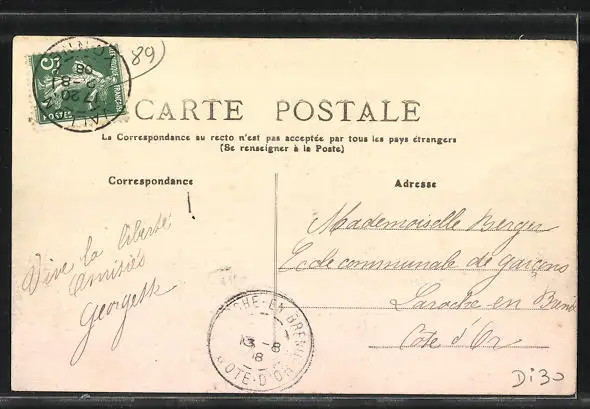 89
5
POSTES
17 20
2-8
08
CARTE POSTALE
La Correspondance au recto n'est pas acceptée par tous les pays étrangers
(Se renseigner à la Poste)
Correspondance
Adresse
Vive la liberté !
Amitiés
Georgette
Mademoiselle Berger
Ecole communale de garçons
Laroche en Brenil
Côte d'Or
CHE-EN-BRENIL
-8
18
COTE-D'OR
Di30